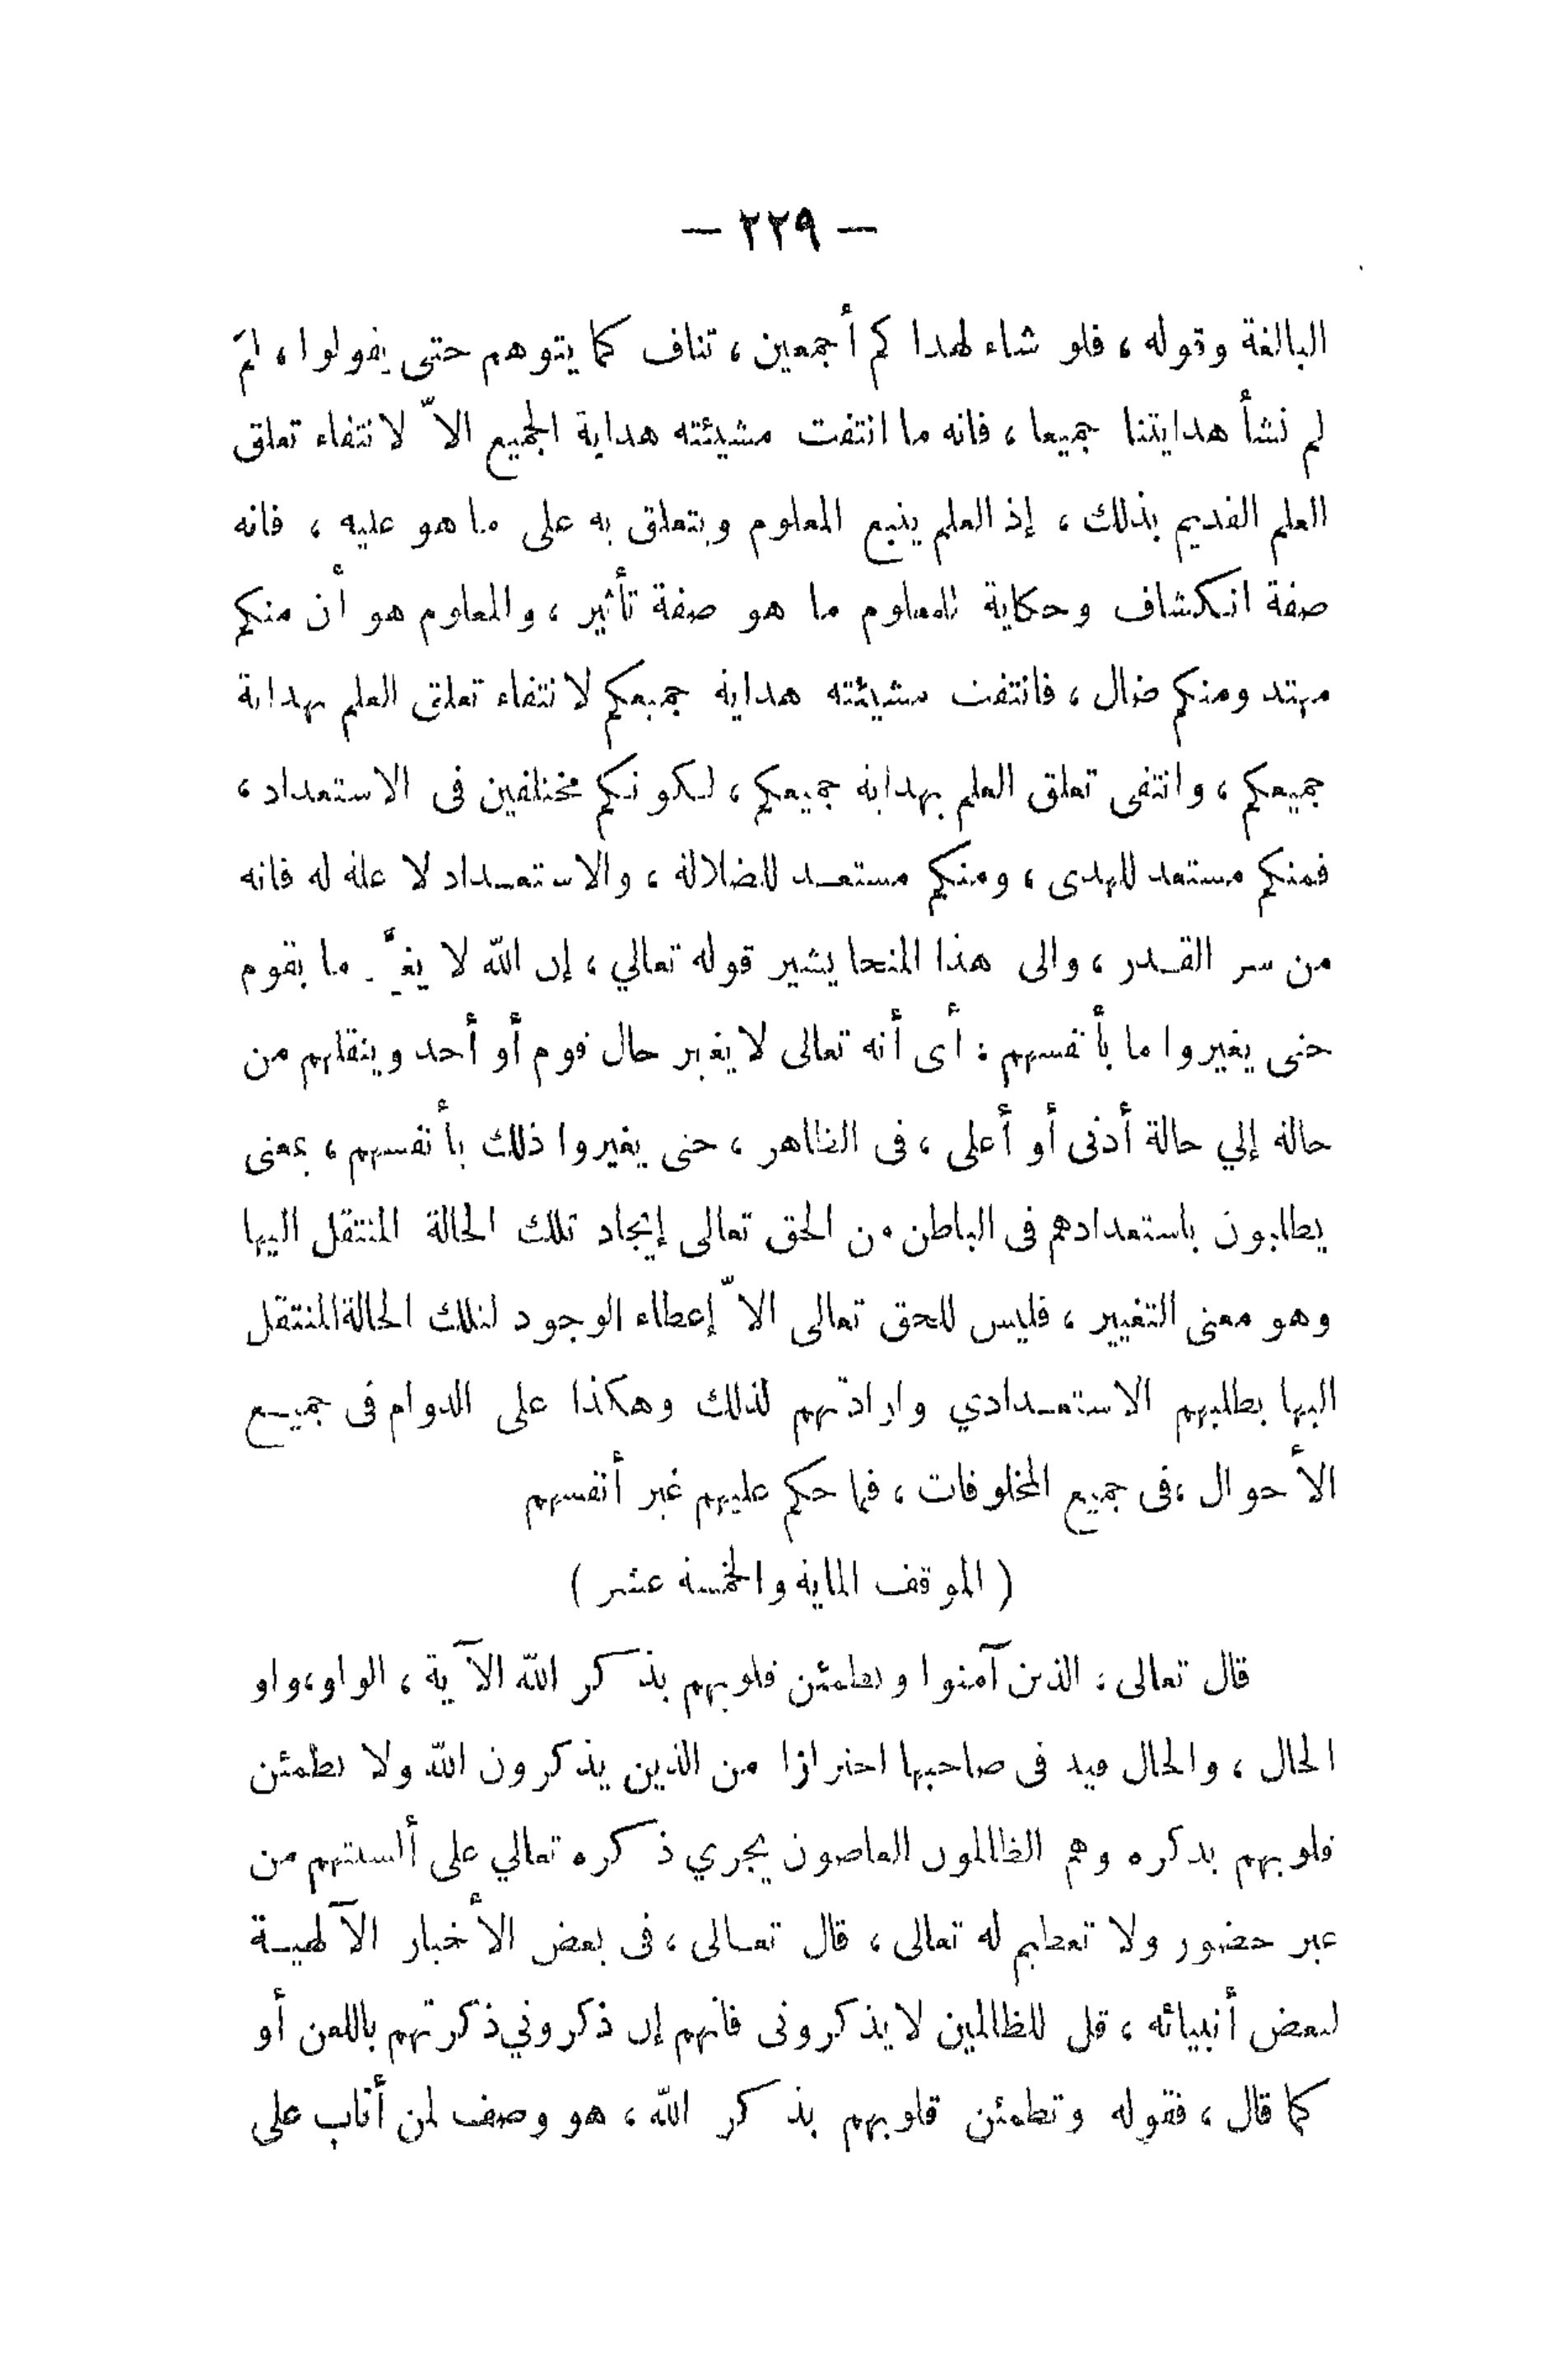 — ٢٢٩ —
البالغة وقوله ، فلو شاء لهدا كم أجمعين ، تناف كما يتوهم حتى يقولوا ، لمَ
لم نشأ هدايتنا جميعا ، فانه ما انتفت مشيئته هداية الجميع الاّ لانتفاء تعلق
العلم القديم بذلك ، إذ العلم يتبع المعلوم ويتعلق به على ما هو عليه ، فانه
صفة انكشاف وحكاية للمعلوم ما هو صفة تأثير ، والمعلوم هو أن منكم
مهتد ومنكم ضال ، فانتفت مشيئته هداية جميعكم لانتفاء تعلق العلم بهداية
جميعكم ، وانتفى تعلق العلم بهداية جميعكم ، لكونكم مختلفين فى الاستعداد ،
فمنكم مستعد للهدى ، ومنكم مستعد للضلالة ، والاستعداد لا علة له فانه
من سر القدر ، والى هذا المنحا يشير قوله تعالي ، إن الله لا يغيّر ما بقوم
حتى يغيروا ما بأنفسهم : أى أنه تعالى لا يغير حال قوم أو أحد وينقلهم من
حالة إلي حالة أدنى أو أعلى ، فى الظاهر ، حتى يغيروا ذلك بأنفسهم ، بمعنى
يطلبون باستعدادهم فى الباطن من الحق تعالى إيجاد تلك الحالة المنتقل اليها
وهو معنى التغيير ، فليس للحق تعالى الاّ إعطاء الوجود لتلك الحالة المنتقل
اليها بطلبهم الاستعدادي وارادتهم لذلك وهكذا على الدوام فى جميع
الأحوال ، فى جميع المخلوقات ، فما حكم عليهم غير أنفسهم
( الموقف الماية والخمسة عشر )
قال تعالى : الذين آمنوا وتطمئن قلوبهم بذكر الله الآية ، الواو ، واو
الحال ، والحال قيد فى صاحبها احترازا من الذين يذكرون الله ولا تطمئن
قلوبهم بذكره وهم الظالمون العاصون يجري ذكره تعالي على ألسنتهم من
غير حضور ولا تعظيم له تعالى ، قال تعالى ، فى بعض الأخبار الآلهية
لبعض أنبيائه ، قل للظالمين لا يذكرونى فانهم إن ذكروني ذكرتهم باللعن أو
كما قال ، فقوله وتطمئن قلوبهم بذكر الله ، هو وصف لمن أناب على